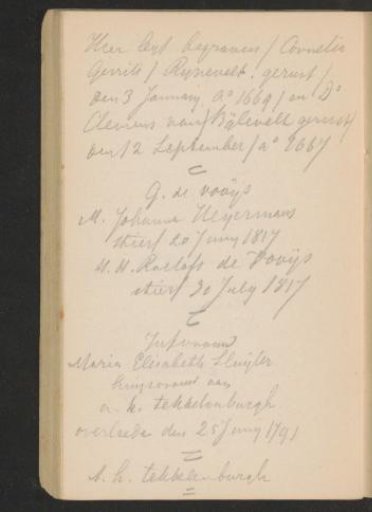 Hier leyt begraven / Cornelis
Gerrits / Rynevelt. gerust /
den 3 January Aº 1669 / en Ds
Clemens van / Bylevelt gerust /
den 12 September / aº 1667
G. de Vooÿs
M. Johanna Heyermans
stierf 20 Juny 1817
H. H. Roelofs de Vooÿs
stierf 30 July 1817
Jufvrouw
Maria Elisabeth Sluyter
huysvrouw van
a. h. tekkelenburgh
overleden den 25 Juny 1791
A. h. tekkelenburgh